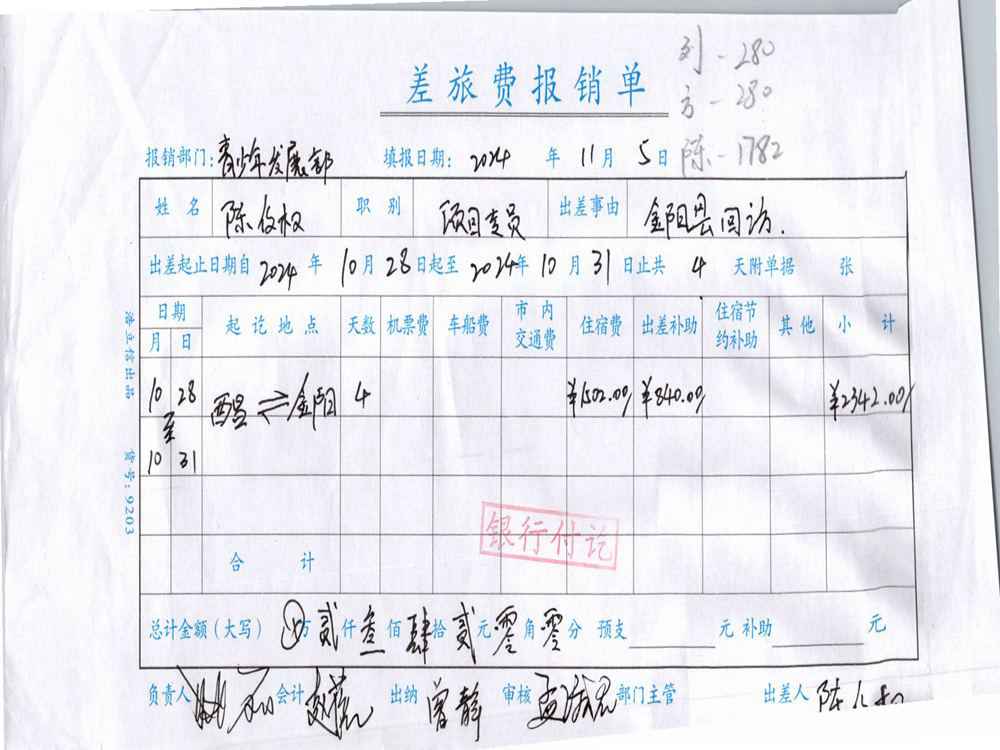 刘 - 280
差旅费报销单
方 - 280
报销部门：青少年发展部 填报日期： 2024 年 11 月 5 日
陈 - 1782
姓 名 职 别 项目专员 出差事由 金阳县回访.
出差起止日期自 2024 年 10 月 28 日起至 2024 年 10 月 31 日止共 4 天附单据 张
日期 起 讫 地 点 天数 机票费 车船费 市 内 交通费 住宿费 出差补助 住宿节 约补助 其 他 小 计
月 日
10 28 ⇌ 金阳 4 ¥1502.00 ¥840.00 ¥2342.00
至
10 31
货号：9203
银行付讫
合 计
总计金额（大写） 万 贰 仟 叁 佰 肆 拾 贰 元 零 角 零 分 预支 元 补助 元
负责人 会计 出纳 曾静 审核 部门主管 出差人 陈